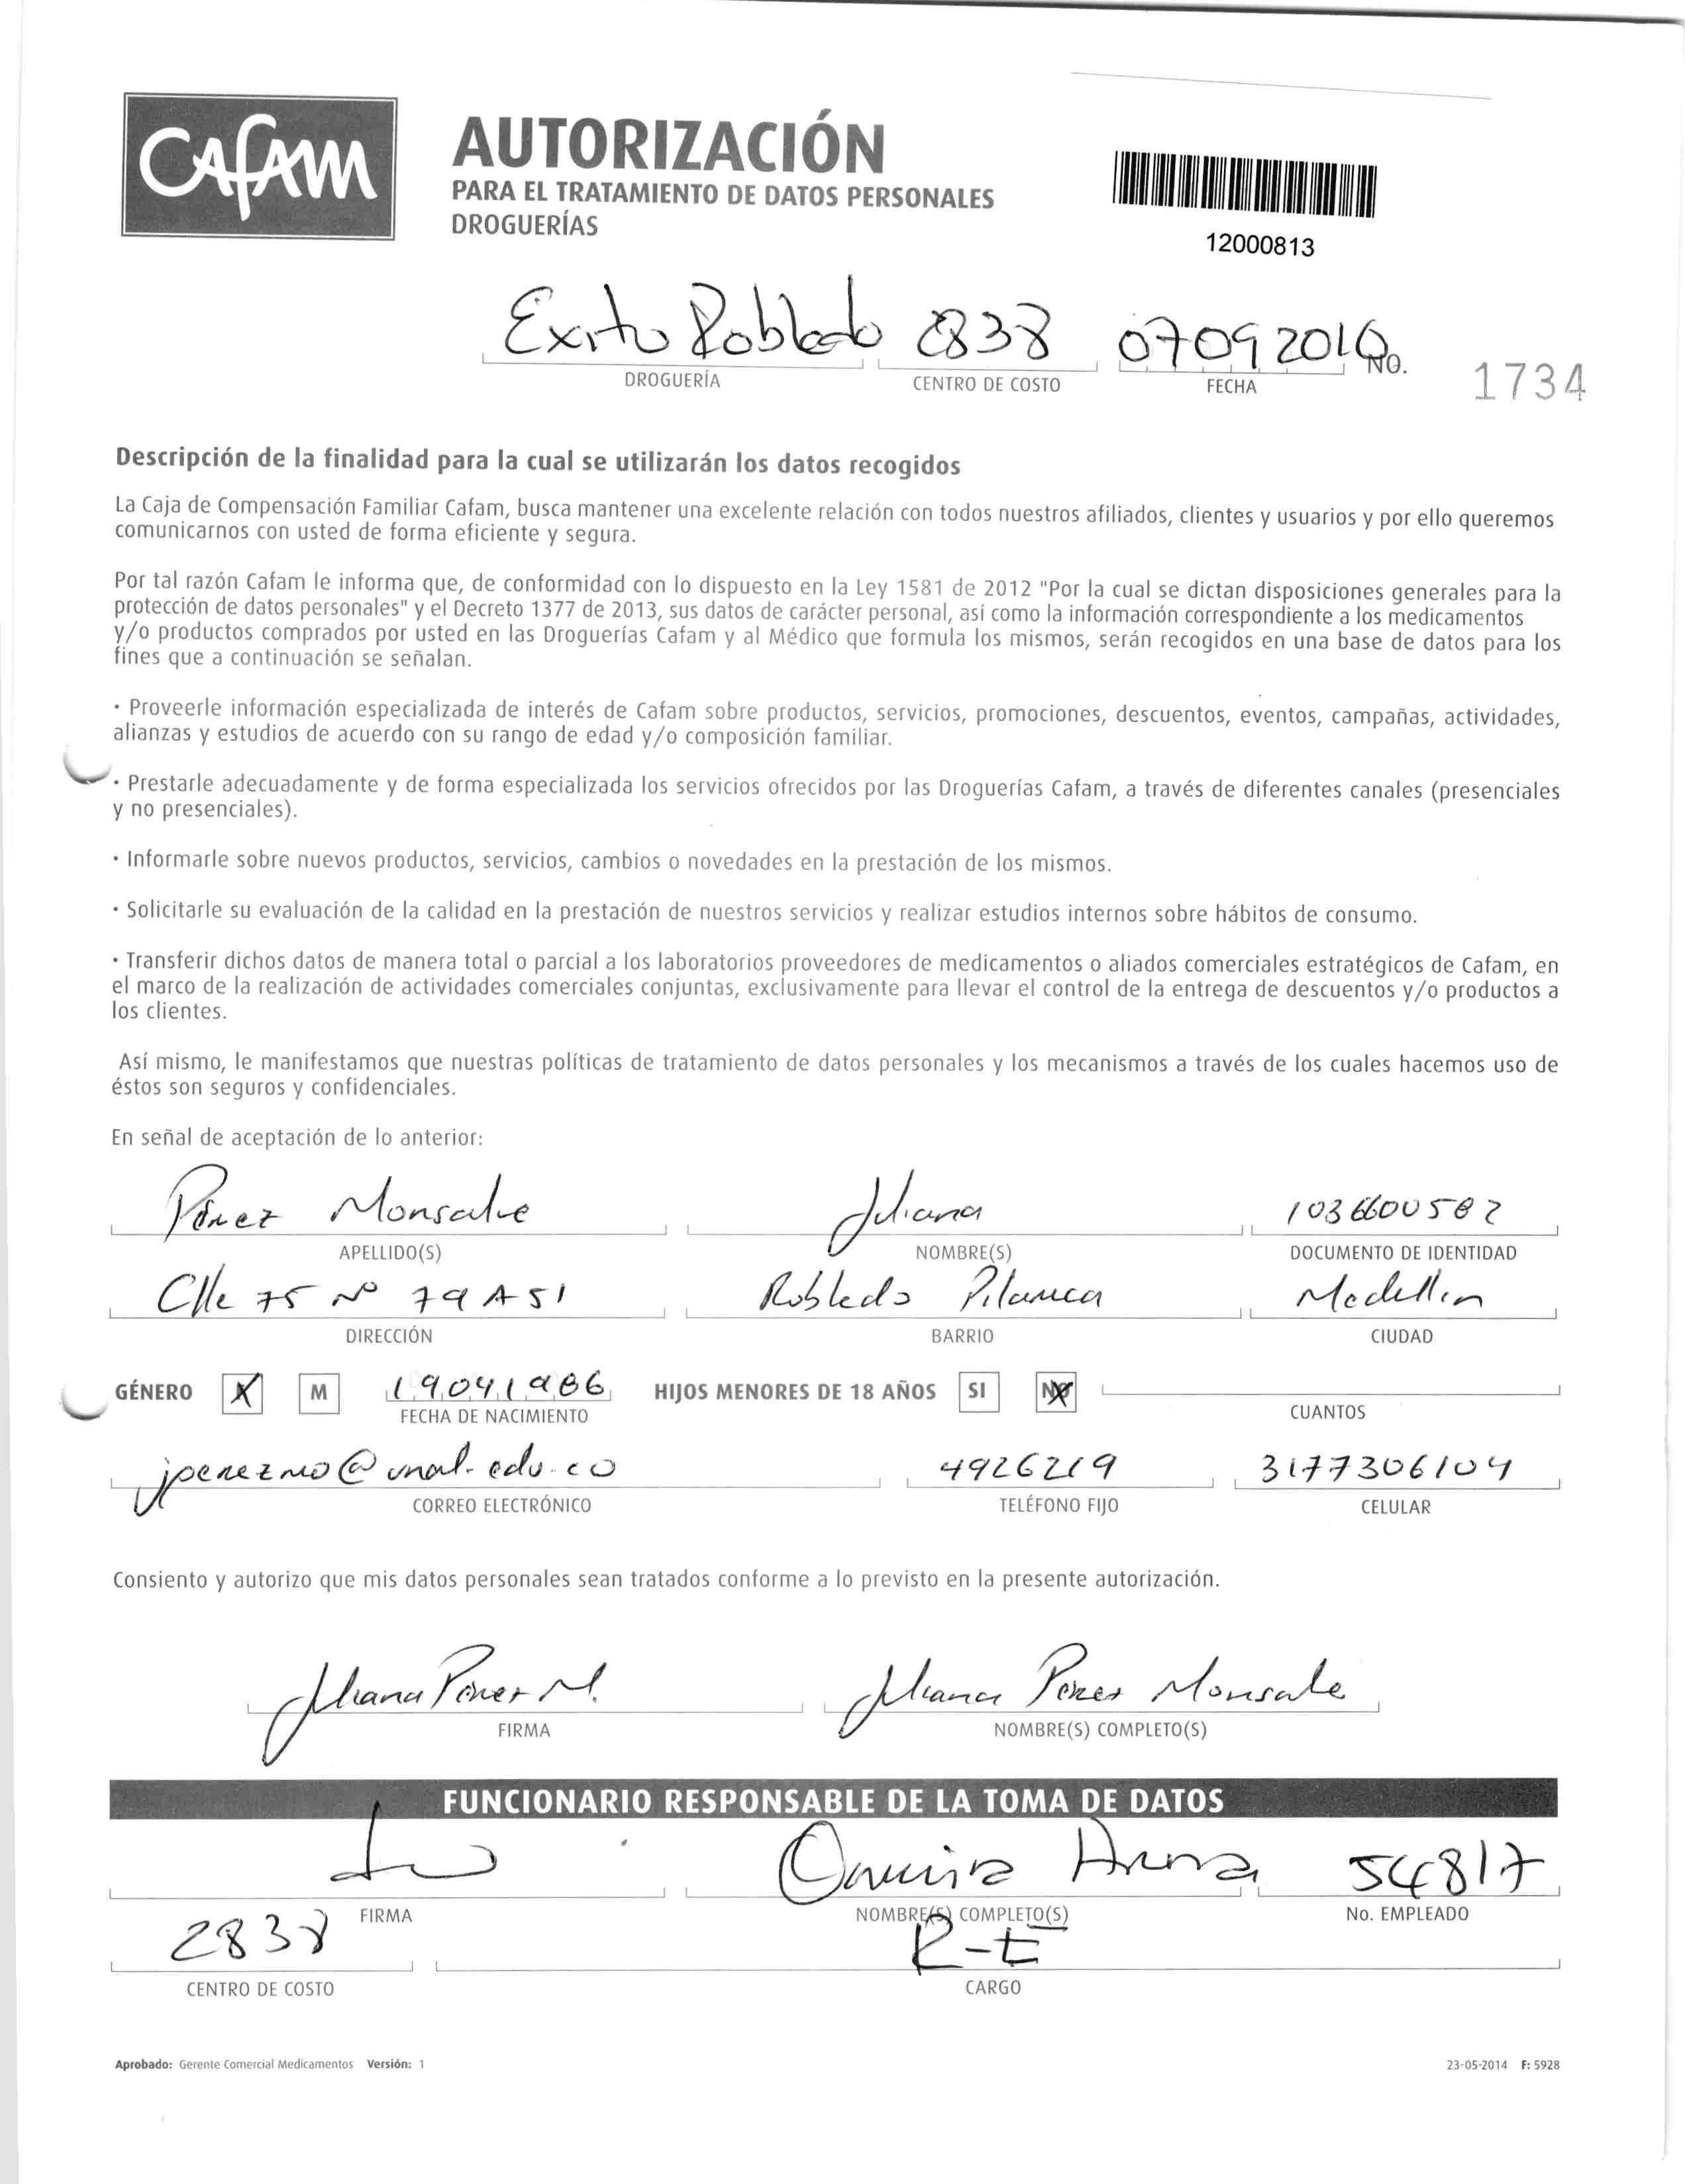 CAFAM
AUTORIZACIÓN
PARA EL TRATAMIENTO DE DATOS PERSONALES
DROGUERÍAS
12000813
Exito Robledo 2838 07092016
DROGUERÍA CENTRO DE COSTO FECHA No. 1734
Descripción de la finalidad para la cual se utilizarán los datos recogidos
La Caja de Compensación Familiar Cafam, busca mantener una excelente relación con todos nuestros afiliados, clientes y usuarios y por ello queremos
comunicarnos con usted de forma eficiente y segura.
Por tal razón Cafam le informa que, de conformidad con lo dispuesto en la Ley 1581 de 2012 "Por la cual se dictan disposiciones generales para la
protección de datos personales" y el Decreto 1377 de 2013, sus datos de carácter personal, así como la información correspondiente a los medicamentos
y/o productos comprados por usted en las Droguerías Cafam y al Médico que formula los mismos, serán recogidos en una base de datos para los
fines que a continuación se señalan.
· Proveerle información especializada de interés de Cafam sobre productos, servicios, promociones, descuentos, eventos, campañas, actividades,
alianzas y estudios de acuerdo con su rango de edad y/o composición familiar.
· Prestarle adecuadamente y de forma especializada los servicios ofrecidos por las Droguerías Cafam, a través de diferentes canales (presenciales
y no presenciales).
· Informarle sobre nuevos productos, servicios, cambios o novedades en la prestación de los mismos.
· Solicitarle su evaluación de la calidad en la prestación de nuestros servicios y realizar estudios internos sobre hábitos de consumo.
· Transferir dichos datos de manera total o parcial a los laboratorios proveedores de medicamentos o aliados comerciales estratégicos de Cafam, en
el marco de la realización de actividades comerciales conjuntas, exclusivamente para llevar el control de la entrega de descuentos y/o productos a
los clientes.
Así mismo, le manifestamos que nuestras políticas de tratamiento de datos personales y los mecanismos a través de los cuales hacemos uso de
éstos son seguros y confidenciales.
En señal de aceptación de lo anterior:
Pérez Monsalve Juliana 1036600582
APELLIDO(S) NOMBRE(S) DOCUMENTO DE IDENTIDAD
Clle 75 Nº 79 A 51 Robledo Pilarica Medellin
DIRECCIÓN BARRIO CIUDAD
GÉNERO X M 19041986 HIJOS MENORES DE 18 AÑOS SI NO
FECHA DE NACIMIENTO CUANTOS
jperezmo@unal.edu.co 4926219 3177306104
CORREO ELECTRÓNICO TELÉFONO FIJO CELULAR
Consiento y autorizo que mis datos personales sean tratados conforme a lo previsto en la presente autorización.
Juliana Pérez M. Juliana Perez Monsalve
FIRMA NOMBRE(S) COMPLETO(S)
FUNCIONARIO RESPONSABLE DE LA TOMA DE DATOS
54817
FIRMA NOMBRE(S) COMPLETO(S) No. EMPLEADO
2838 R-E
CENTRO DE COSTO CARGO
Aprobado: Gerente Comercial Medicamentos Versión: 1 23-05-2014 F: 5928